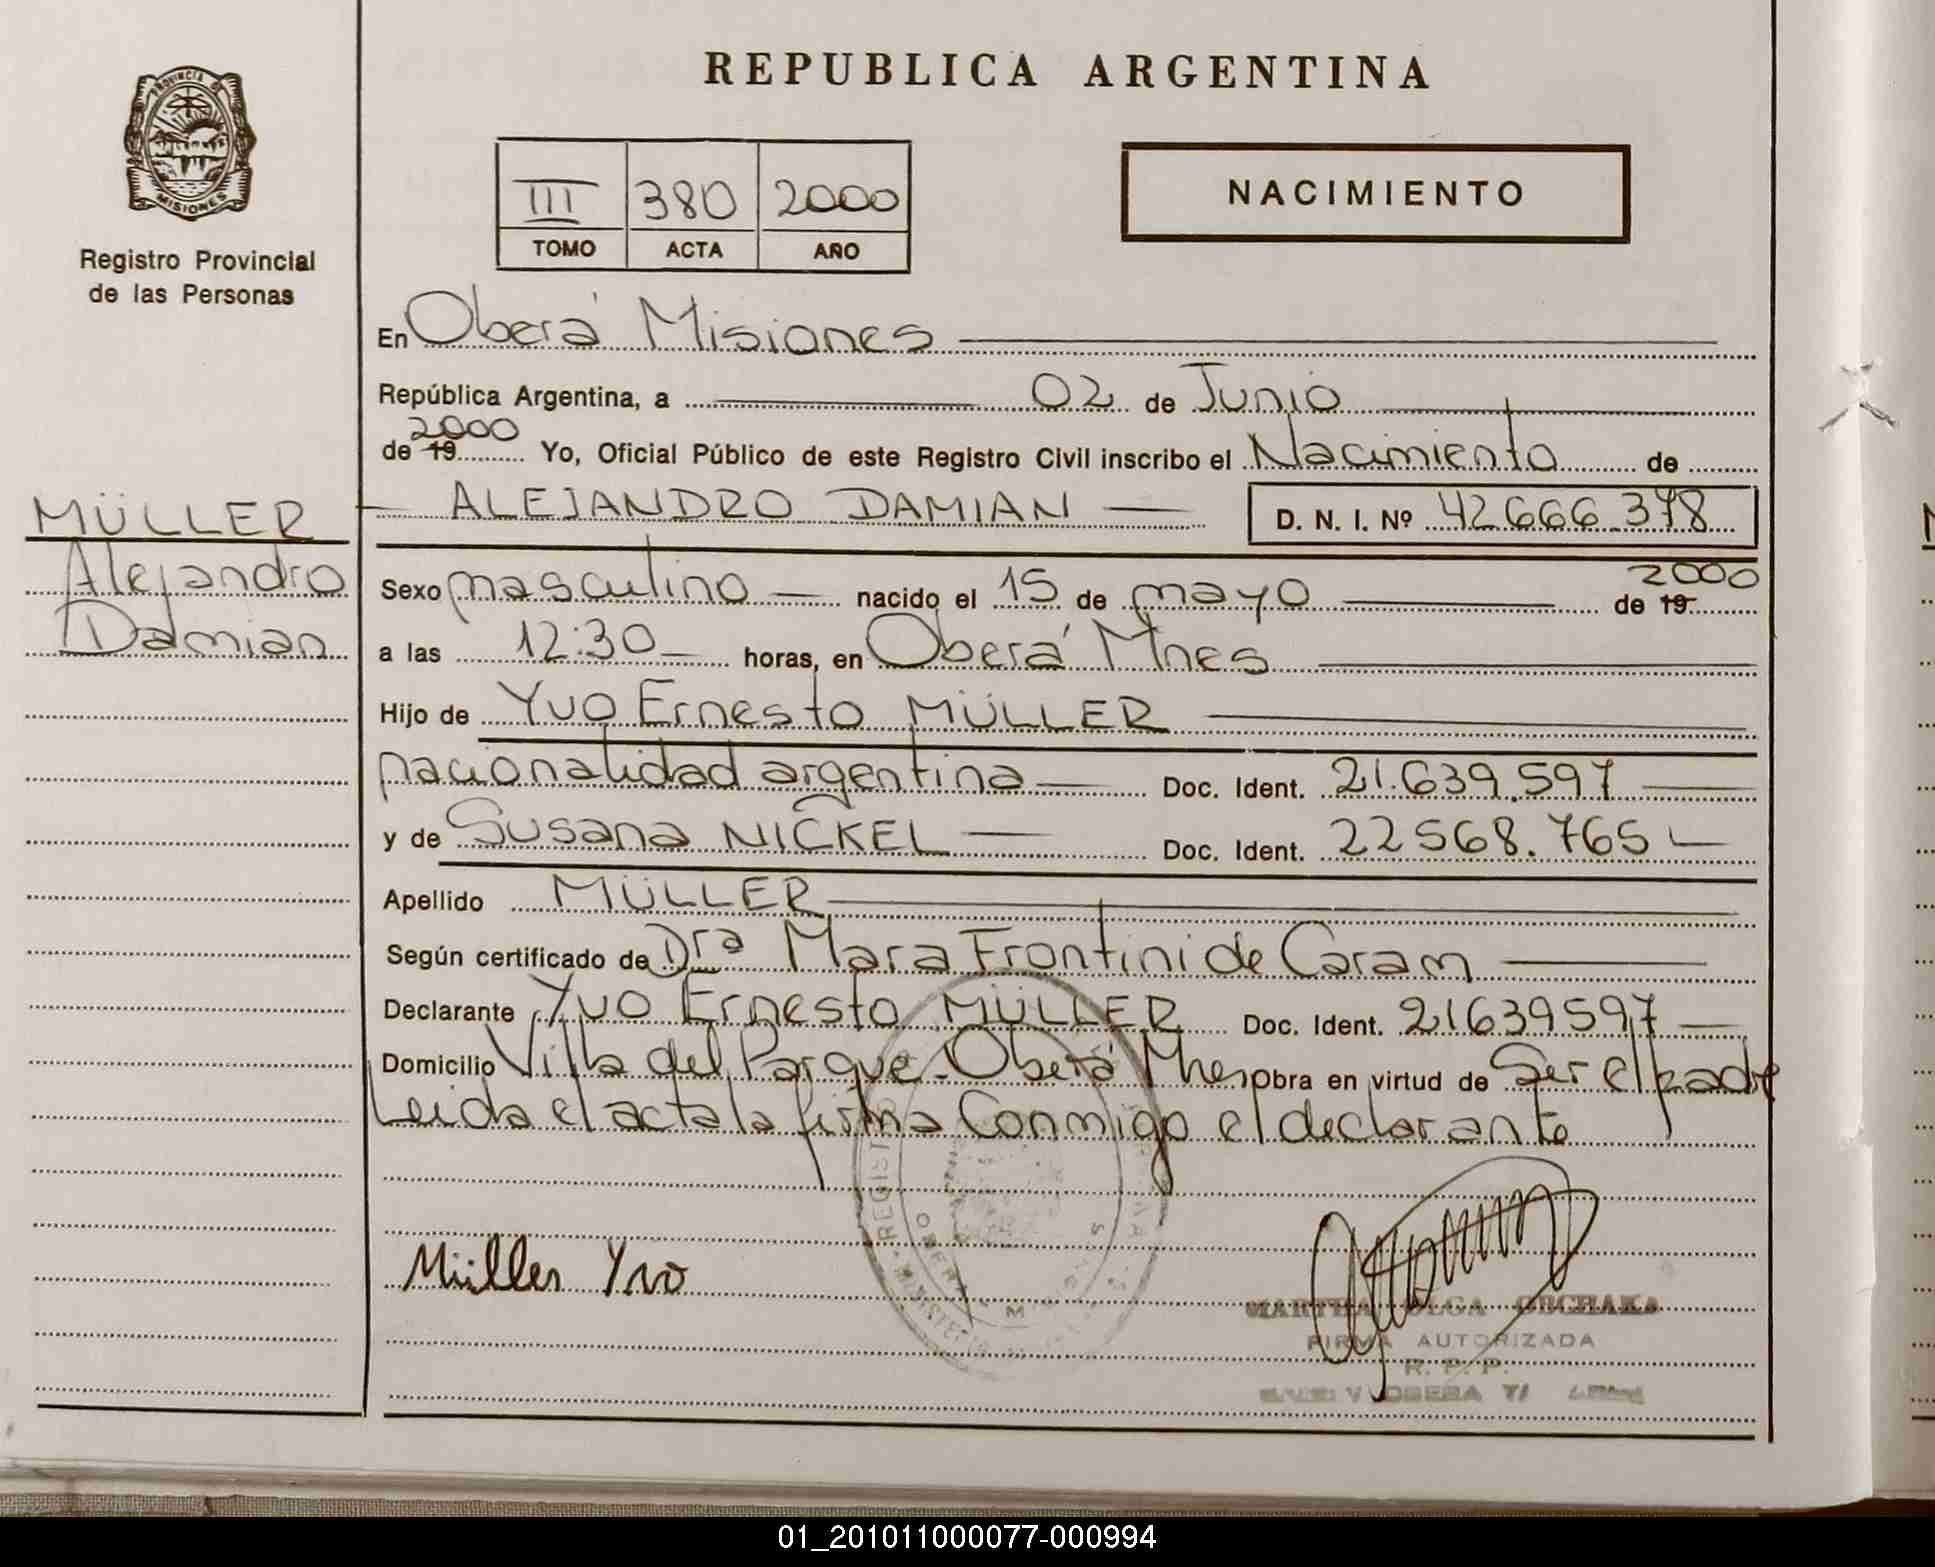 REPUBLICA ARGENTINA
PROVINCIA DE
MISIONES
Registro Provincial
de las Personas
III 380 2000
TOMO ACTA AÑO
NACIMIENTO
En Oberá Misiones
República Argentina, a 02 de Junio
de 19 2000 Yo, Oficial Público de este Registro Civil inscribo el Nacimiento de
ALEJANDRO DAMIAN D. N. I. Nº 42.666.378
MÜLLER
Alejandro
Damian
Sexo masculino nacido el 15 de mayo de 19 2000
a las 12:30 horas, en Oberá Mnes
Hijo de Yvo Ernesto MÜLLER
nacionalidad argentina Doc. Ident. 21.639.597
y de Susana NICKEL Doc. Ident. 22568.765
Apellido MÜLLER
Según certificado de Dra Mara Frontini de Caram
Declarante Yvo Ernesto MÜLLER Doc. Ident. 21639597
Domicilio Villa del Parque-Oberá Mnes obra en virtud de Ser el padre
Leida el acta la firma Conmigo el declarante
Müller Yvo
MARTHA OLGA
FIRMA AUTORIZADA
R. P. P.
01_201011000077-000994